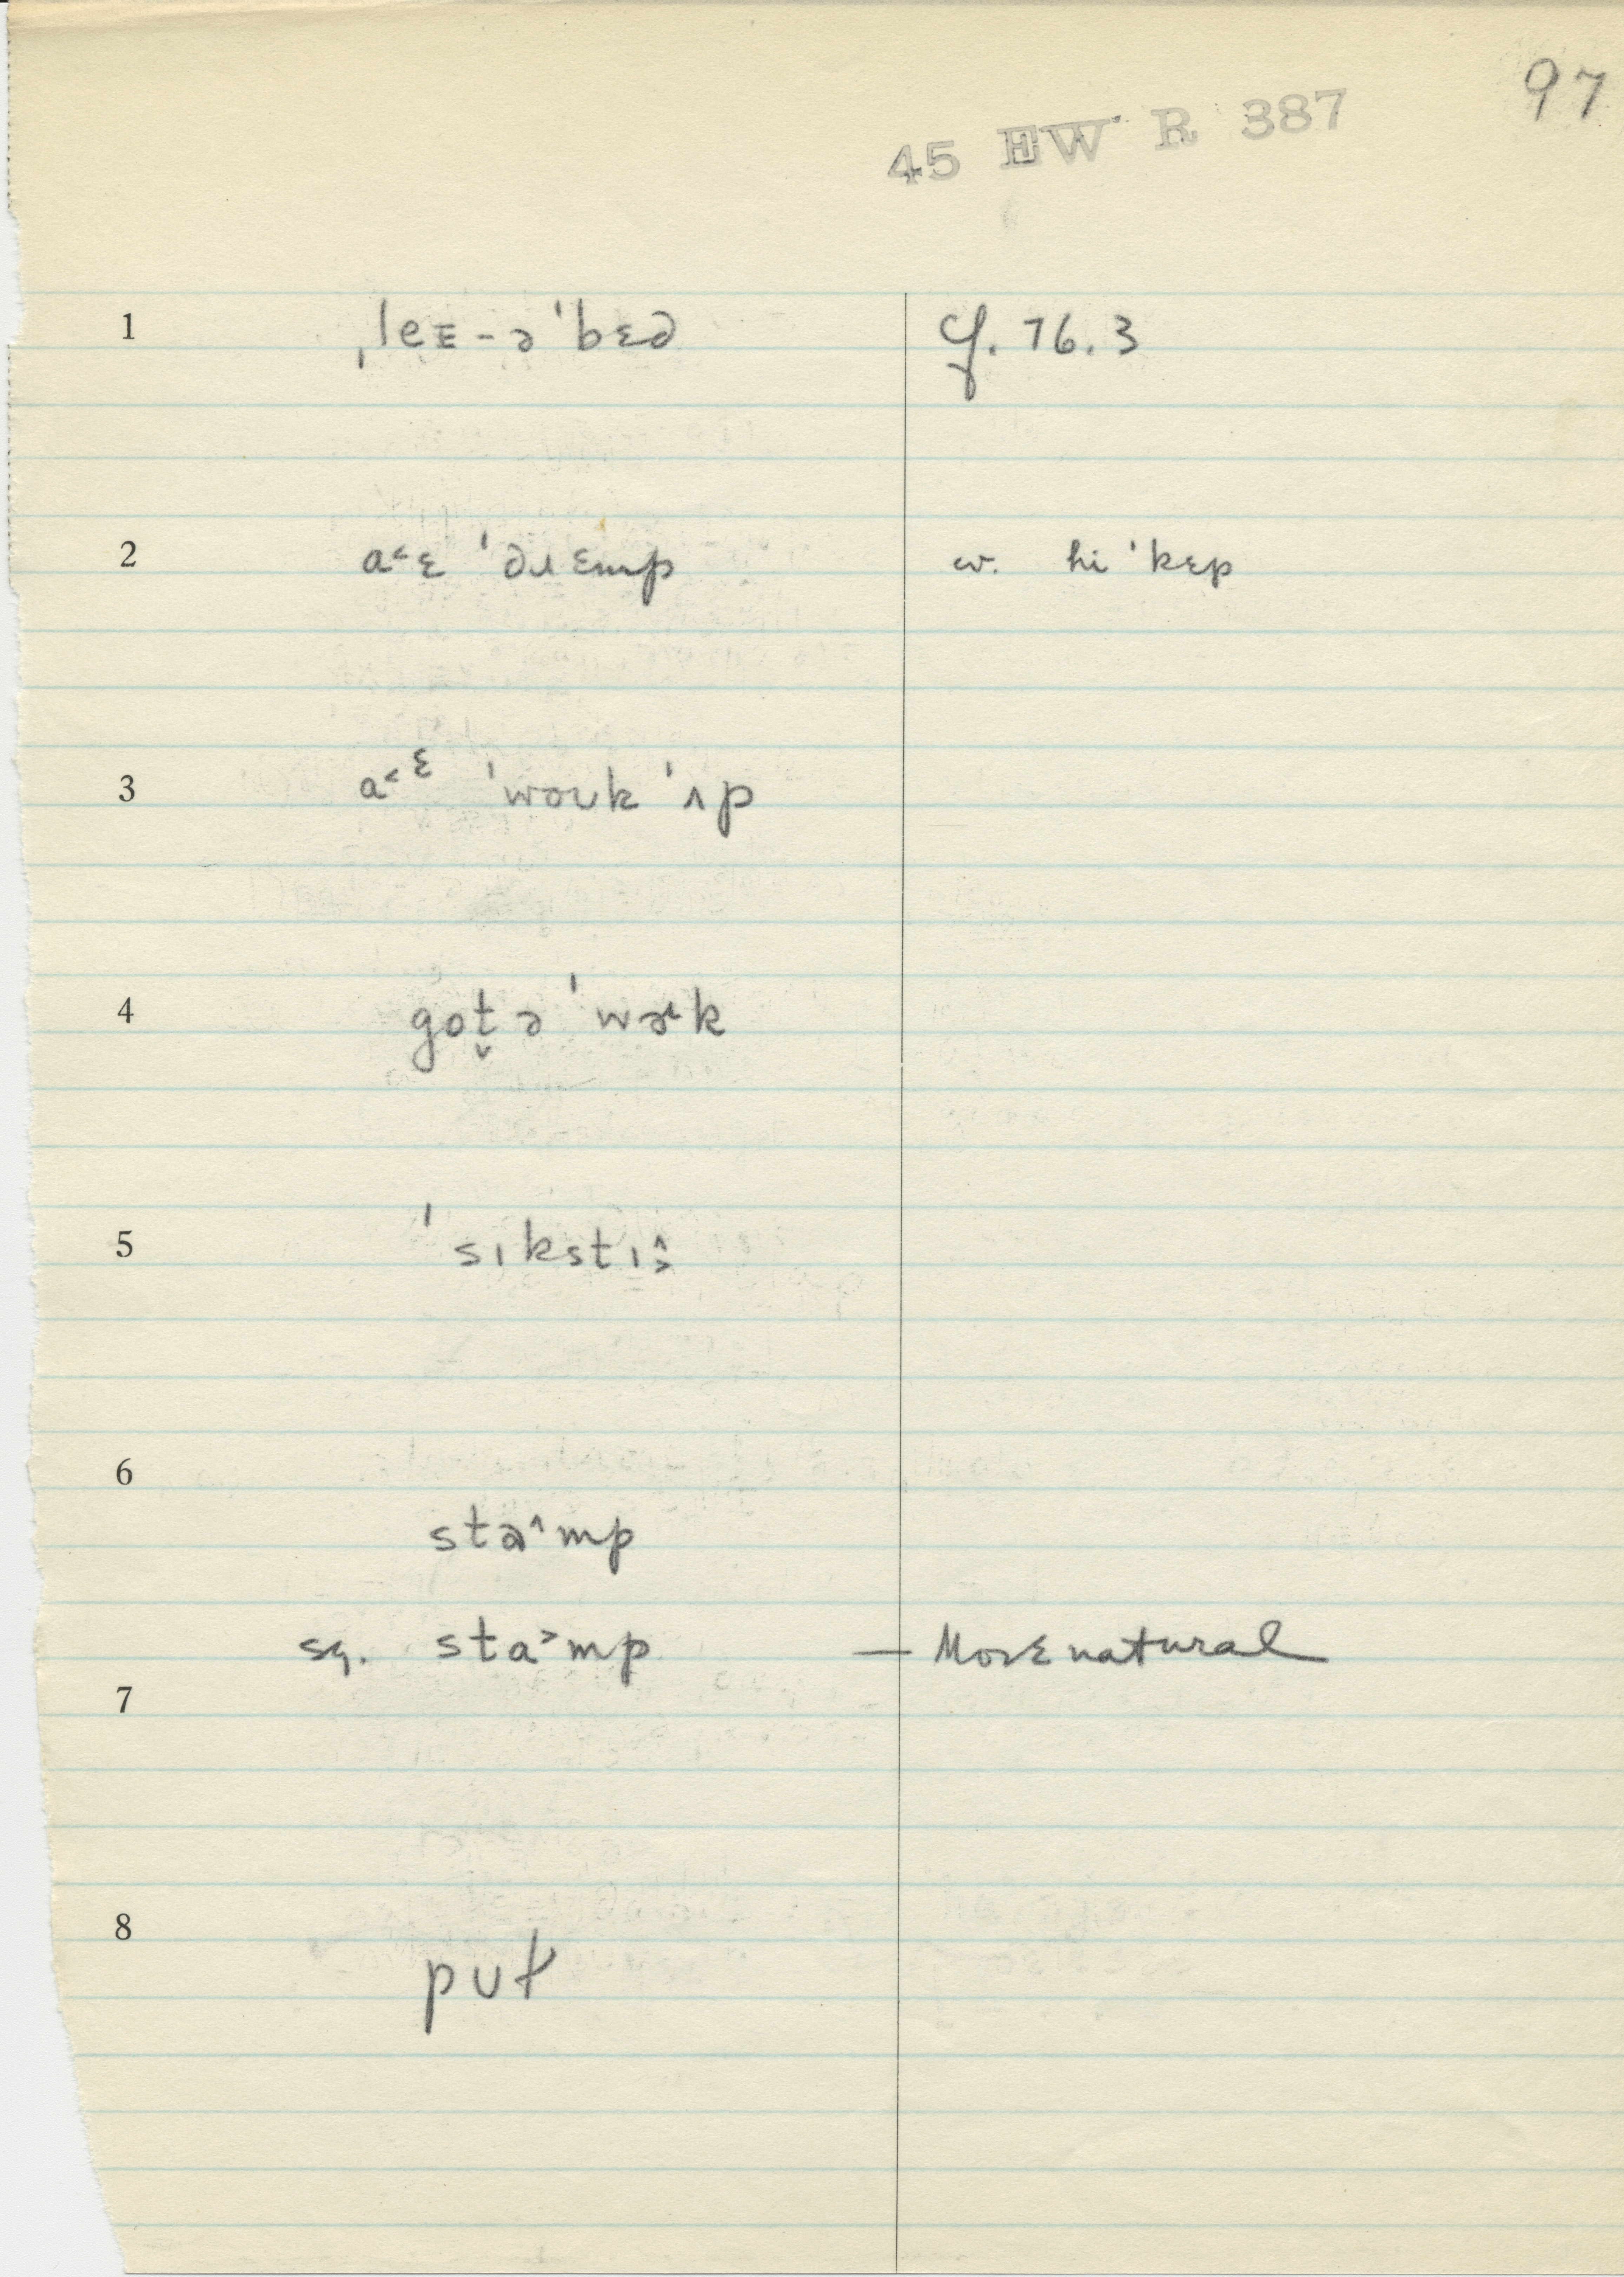 97
45 EW R 387
1 ˌleᴇ-ə ˈbɛd cf. 76.3
2 a˂ɛ ˈdɹɛmp w. hi ˈkɛp
3 a˂ᵋ ˈwouk ˈʌp
4 got̬ə ˈwɚk
5 ˈsɪkstɪ˄˃
6
stɒ˄mp
sq. sta˃mp — More natural
7
8
put